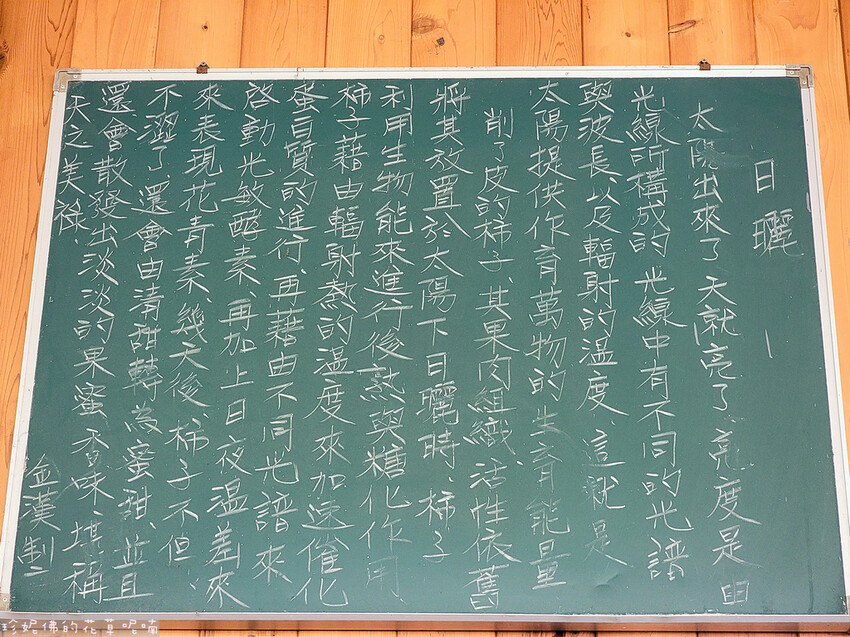 日曬
太陽出來了天就亮了、亮度是由
光線所構成的、光線中有不同的光譜
與波長以及輻射的溫度、這就是
太陽提供作育萬物的生育能量
削了皮的柿子、其果肉組織、活性依舊
將其放置於太陽下日曬時、柿子
利用生物能來進行後熟與糖化作用、
柿子藉由輻射熱的溫度來加速催化
蛋白質的進行、再藉由不同光譜來
啓動光敏酶素、再加上日夜溫差來
來表現花青素、幾天後、柿子不但
不澀了、還會由清甜轉為蜜甜、並且
還會散發出淡淡的果蜜香味、堪稱
天之美祿、
金漢製
珍妮佛的花草呢喃